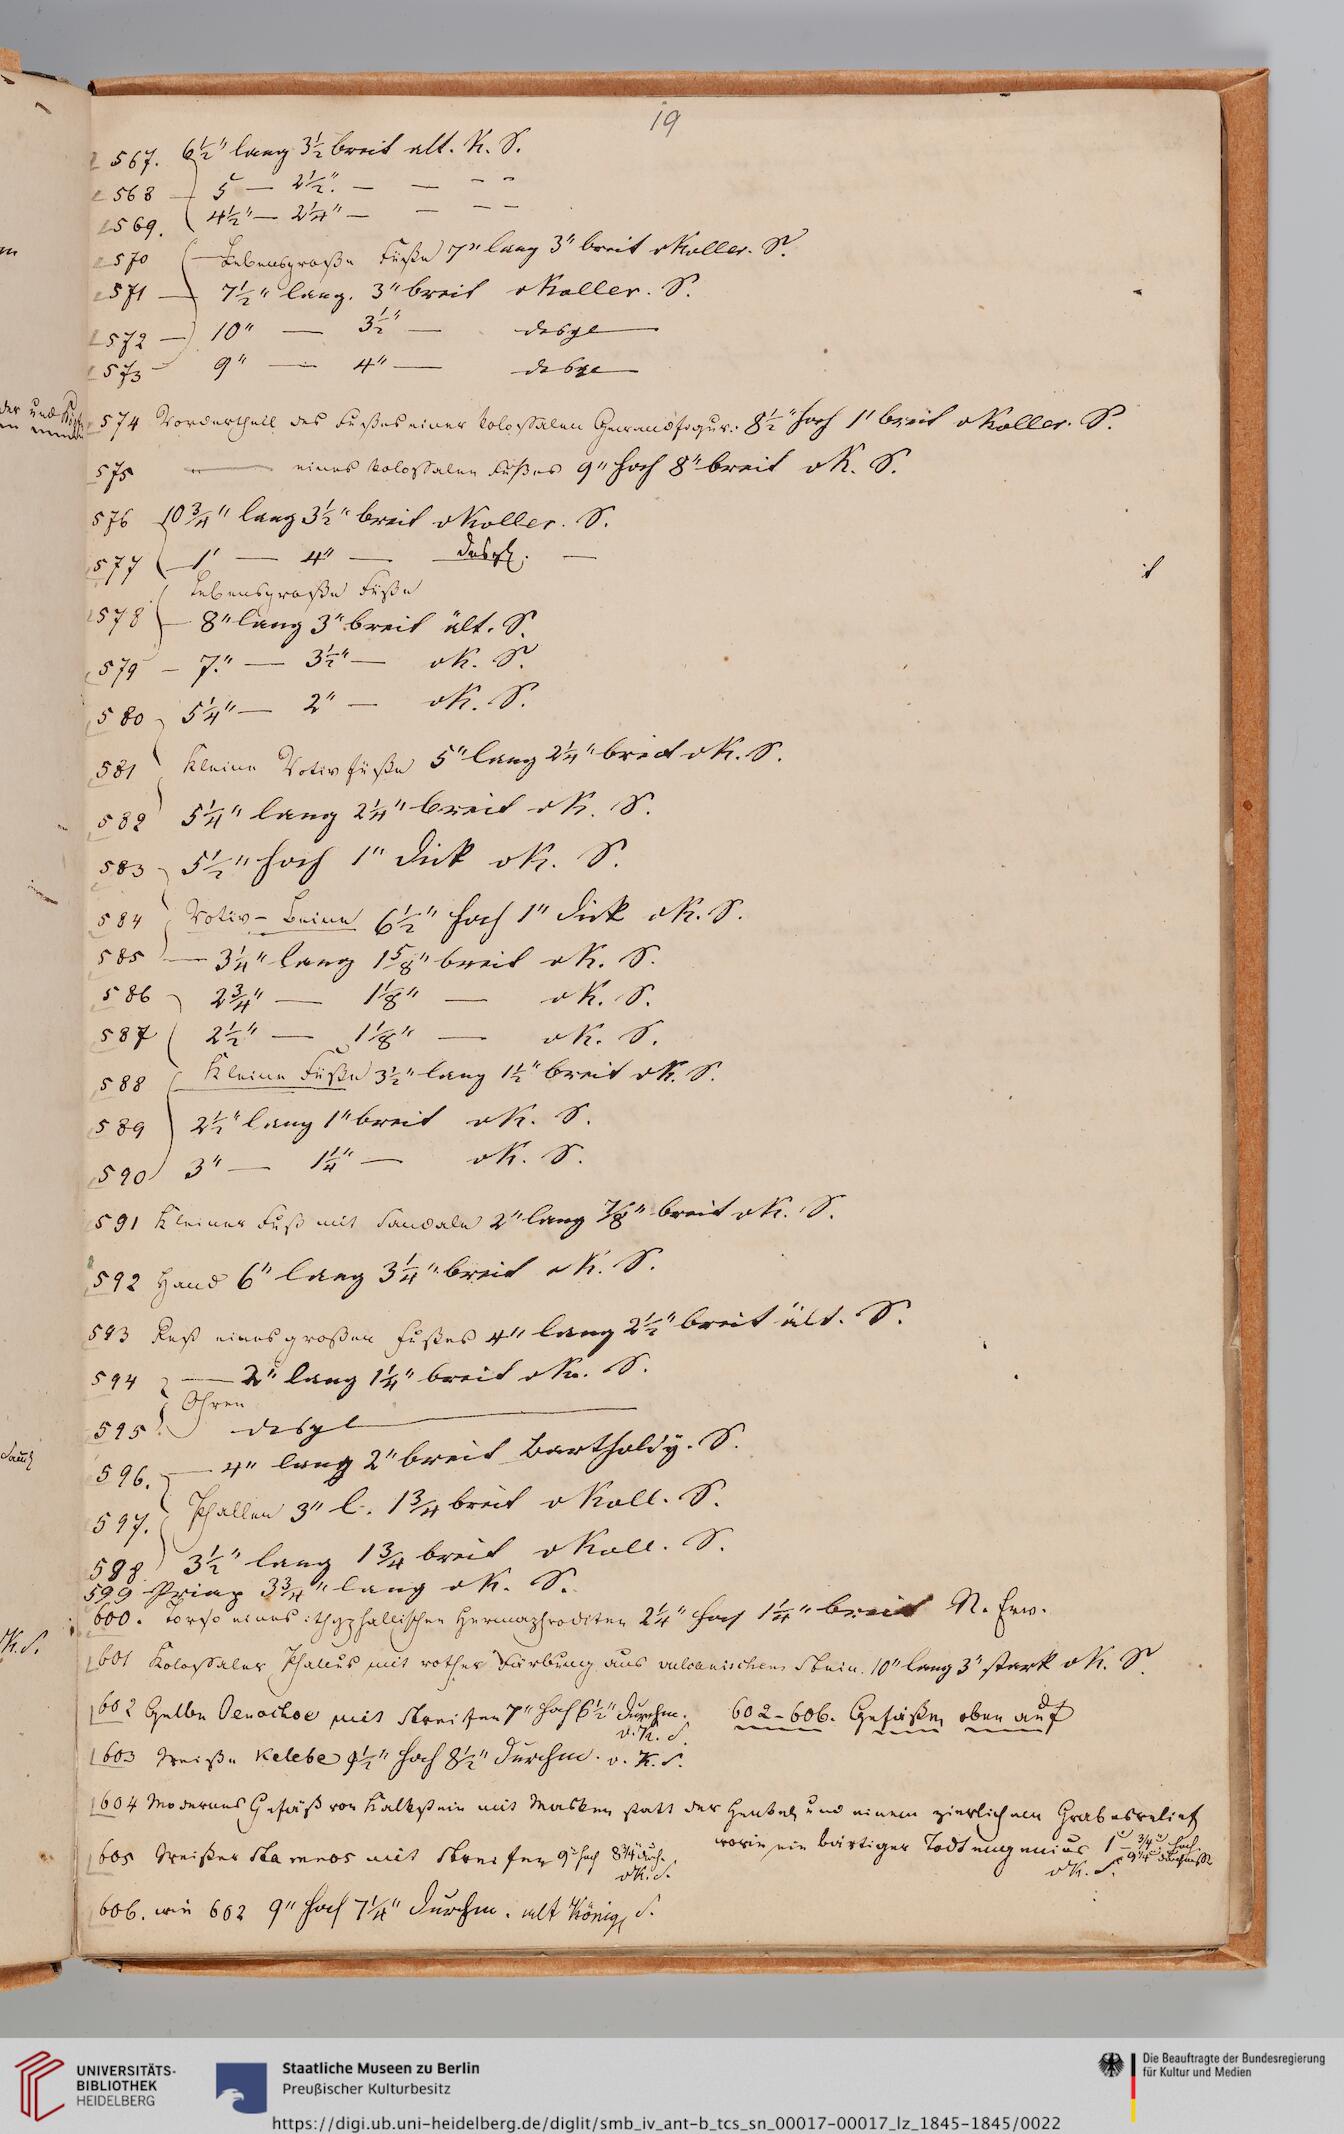 19
567. 6½" lang 3½ breit alt. K. S.
568 — 5 — 2½". — — – –
569. 4½" — 2¼" — — – –
570 — Lebensgroße Füße 7" lang 3" breit v Koller. S.
571 — 7½" lang. 3" breit v Koller. S.
572 — 10" — 3½" — desgl
573 — 9" — 4" — desgl
574 Vordertheil des Fußes einer kolossalen Gewandfigur: 8½" hoch 1' breit v Koller. S.
575 — eines kolossalen Fußes 9" hoch 8" breit v K. S.
576 10¾" lang 3½" breit v Koller. S.
577 — 1' — 4" — desgl. —
Lebensgroße Füße
578 — 8" lang 3" breit ält. S.
579 — 7." — 3½" — v K. S.
580 5¼" — 2" — v K. S.
581 Kleine Votivfüße 5" lang 2¼" breit v K. S.
582 5¼" lang 2¼" breit v K. S.
583 5½" hoch 1" dick v K. S.
584 Votiv-Beine 6½" hoch 1" dick v K. S.
585 — 3¼" lang 1⅝" breit v K. S.
586 2¾" — 1⅛" — v K. S.
587 2½" — 1⅛" — v K. S.
588 Kleine Füße 3½" lang 1½" breit v K. S.
589 2½" lang 1" breit v K. S.
590 3" — 1¼" — v K. S.
591 Kleiner Fuß mit Sandale 2" lang ⅞" breit v K. S.
592 Hand 6" lang 3¼" breit v K. S.
593 Rest eines großen Fußes 4" lang 2½" breit ält. S.
594 — 2" lang 1¼" breit v K. S.
Ohren
595 desgl
596. — 4" lang 2" breit Bartholdy. S.
597. Phallen 3" l. 1¾ breit v Koll. S.
598 3½" lang 1¾ breit v Koll. S.
599 Priap 3¾" lang v K. S.
600. Torso eines ithyphallischen Hermaphroditen 2¼" hoch 1¼" breit N. Erw.
601 Kolossaler Phallus mit rother Färbung aus vulcanischem Stein. 10" lang 3" stark v K. S.
602 Gelbe Oenochoe mit Streifen 7" hoch 6½" Durchm. 602-606. Gefäße, oben auf
v. K. S.
603 Weiße Kelebe 9½" hoch 8½" Durchm. v. K. S.
604 Modernes Gefäß von Kalkstein mit Masken statt der Henkel, und einem zierlichem Grabesrelief
worin ein bärtiger Todtengenius 1' ¾" hoch
9¼" Durchmess
v K. S.
605 Weißer Stamnos mit Streifen 9" hoch 8¾" Durchm.
v K. S.
606. wie 602 9" hoch 7¼" Durchm. alt Königl S.
UNIVERSITÄTS-
BIBLIOTHEK
HEIDELBERG
Staatliche Museen zu Berlin
Preußischer Kulturbesitz
Die Beauftragte der Bundesregierung
für Kultur und Medien
https://digi.ub.uni-heidelberg.de/diglit/smb_iv_ant-b_tcs_sn_00017-00017_lz_1845-1845/0022